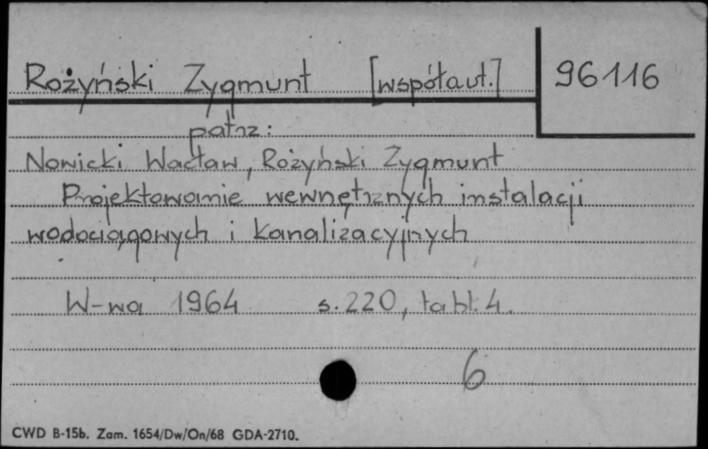 Rożyński Zygmunt [współaut.] 96116
patrz:
Nowicki Wacław, Rożyński Zygmunt
Projektowanie wewnętrznych instalacji
wodociągowych i kanalizacyjnych
W-wa 1964 s. 220, tabl. 4.
6
CWD B-15b. Zam. 1654/Dw/On/68 GDA-2710.